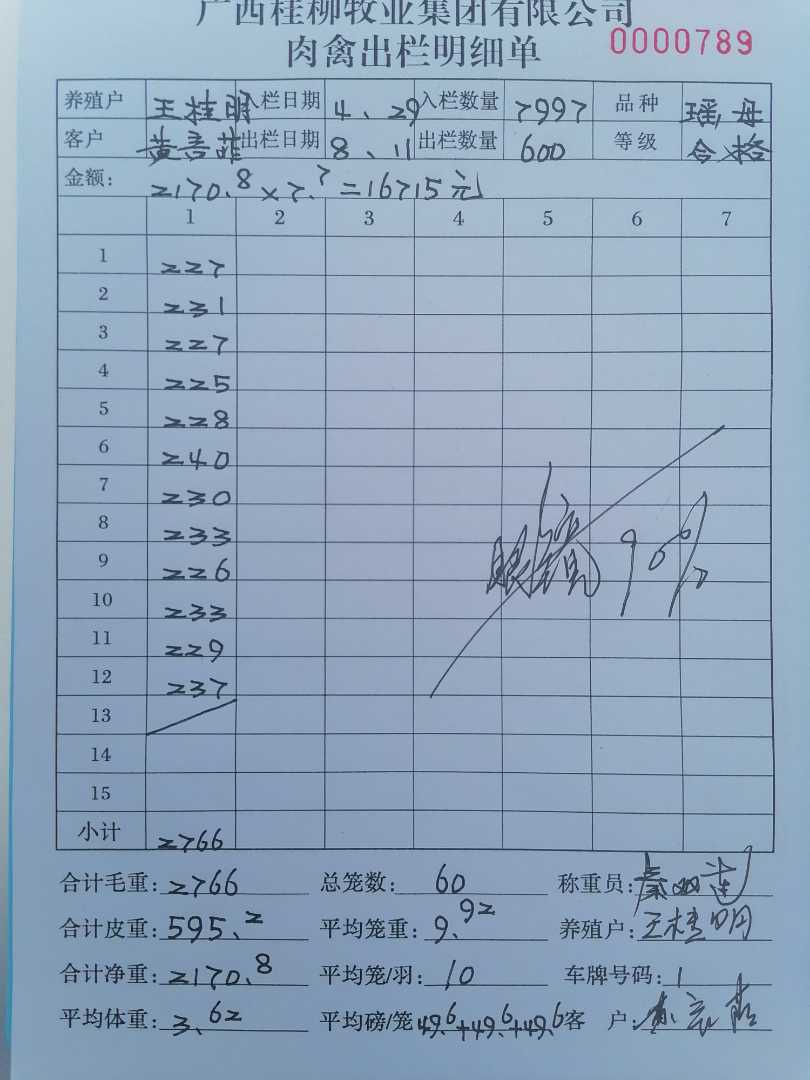 广西桂柳牧业集团有限公司
肉禽出栏明细单 0000789
养殖户 王桂明 入栏日期 4、29 入栏数量 7997 品种 瑶,母
客户 出栏日期 8、11 出栏数量 600 等级 合格
金额: 2170.8×7.7=16715元
1 2 3 4 5 6 7
1 227
2 231
3 227
4 225
5 228
6 240
7 230
8 233
9 226
10 233
11 229
12 237
13
14
15
小计 2766
90%
合计毛重: 2766 总笼数: 60 称重员:
合计皮重: 595.2 平均笼重: 9.92 养殖户: 王桂明
合计净重: 2170.8 平均笼/羽: 10 车牌号码: 1
平均体重: 3.62 平均磅/笼 49.6+49.6+49.6 客 户: